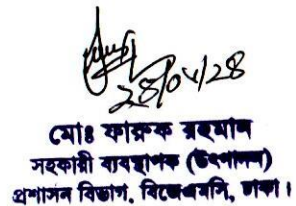 ২৪/০৮/২৪
মোঃ ফারুক রহমান
সহকারী ব্যবস্থাপক (উৎপাদন)
প্রশাসন বিভাগ, বিজেএমসি, ঢাকা।